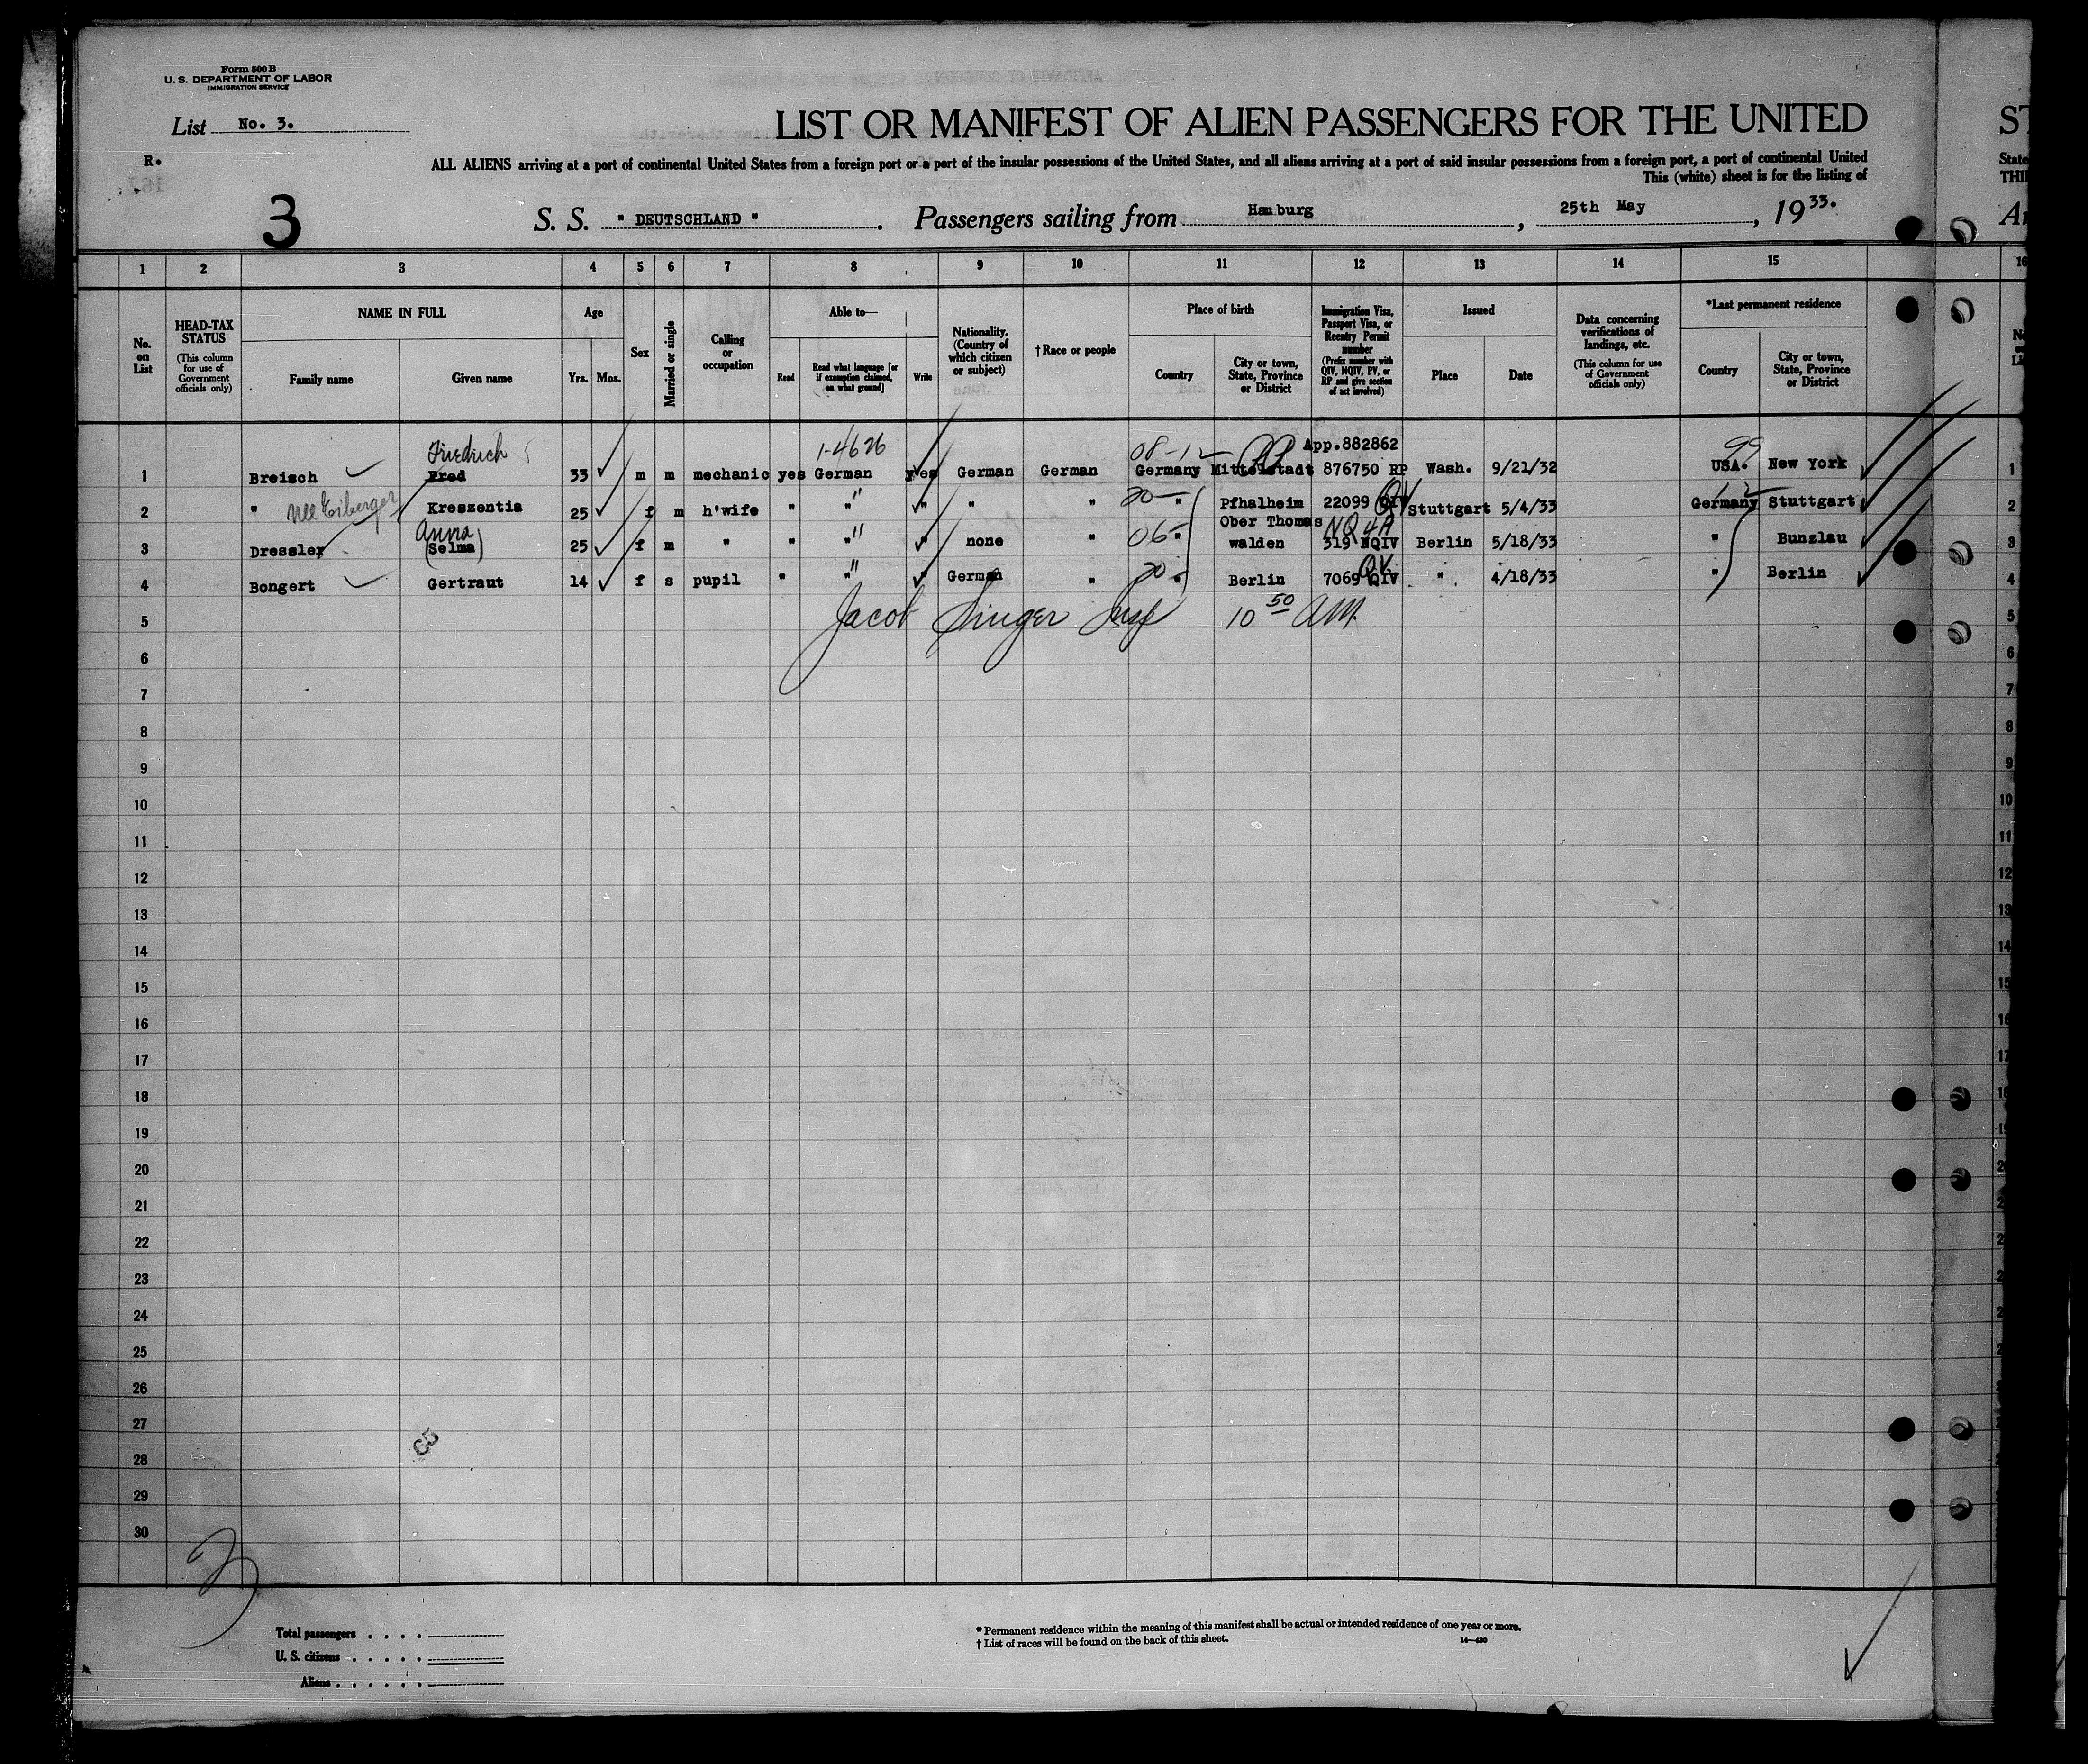 Form 500 B
U. S. DEPARTMENT OF LABOR
IMMIGRATION SERVICE
List No. 3.
R.
3
LIST OR MANIFEST OF ALIEN PASSENGERS FOR THE UNITED
ST
ALL ALIENS arriving at a port of continental United States from a foreign port or a port of the insular possessions of the United States, and all aliens arriving at a port of said insular possessions from a foreign port, a port of continental United
State
This (white) sheet is for the listing of
THI
S. S. " DEUTSCHLAND ". Passengers sailing from Hamburg, 25th May, 1933.
1 2 3 4 5 6 7 8 9 10 11 12 13 14 15 16
No. on List
HEAD-TAX STATUS (This column for use of Government officials only)
NAME IN FULL
Family name Given name
Age
Yrs. Mos.
Sex
Married or single
Calling or occupation
Able to—
Read Read what language [or if exemption claimed, on what ground] Write
Nationality. (Country of which citizen or subject)
† Race or people
Place of birth
Country City or town, State, Province or District
Immigration Visa, Passport Visa, or Reentry Permit number (Prefix number with QIV, NQIV, PV, or RP and give section of act involved)
Issued
Place Date
Data concerning verifications of landings, etc. (This column for use of Government officials only)
*Last permanent residence
Country City or town, State, Province or District
Friedrich 1-4626 08-12 App.882862 99
1 Breisch Fred 33 m m mechanic yes German yes German German Germany Mittelstadt 876750 RP Wash. 9/21/32 USA. New York 1
2 " nee Eiberger Kreszentia 25 f m h'wife " " " " " 20- " Pfhalheim 22099 QIV QV Stuttgart 5/4/33 Germany 12 Stuttgart 2
Anna Ober Thomas NQ4A
3 Dressler (Selma) 25 f m " " " " none " 06- " walden 319 NQIV Berlin 5/18/33 " Bunzlau 3
4 Bongert Gertraut 14 f s pupil " " " German " 20- " Berlin 7069 QIV QV " 4/18/33 " Berlin 4
5 Jacob Singer Insp 10 50 AM. 5
6 6
7 7
8 8
9 9
10 10
11 11
12 12
13 13
14 14
15 15
16 16
17 17
18 18
19
20
21
22
23
24
25
26
27
C5
28
29
30
Total passengers
U. S. citizens
Aliens
* Permanent residence within the meaning of this manifest shall be actual or intended residence of one year or more.
† List of races will be found on the back of this sheet.
14—430